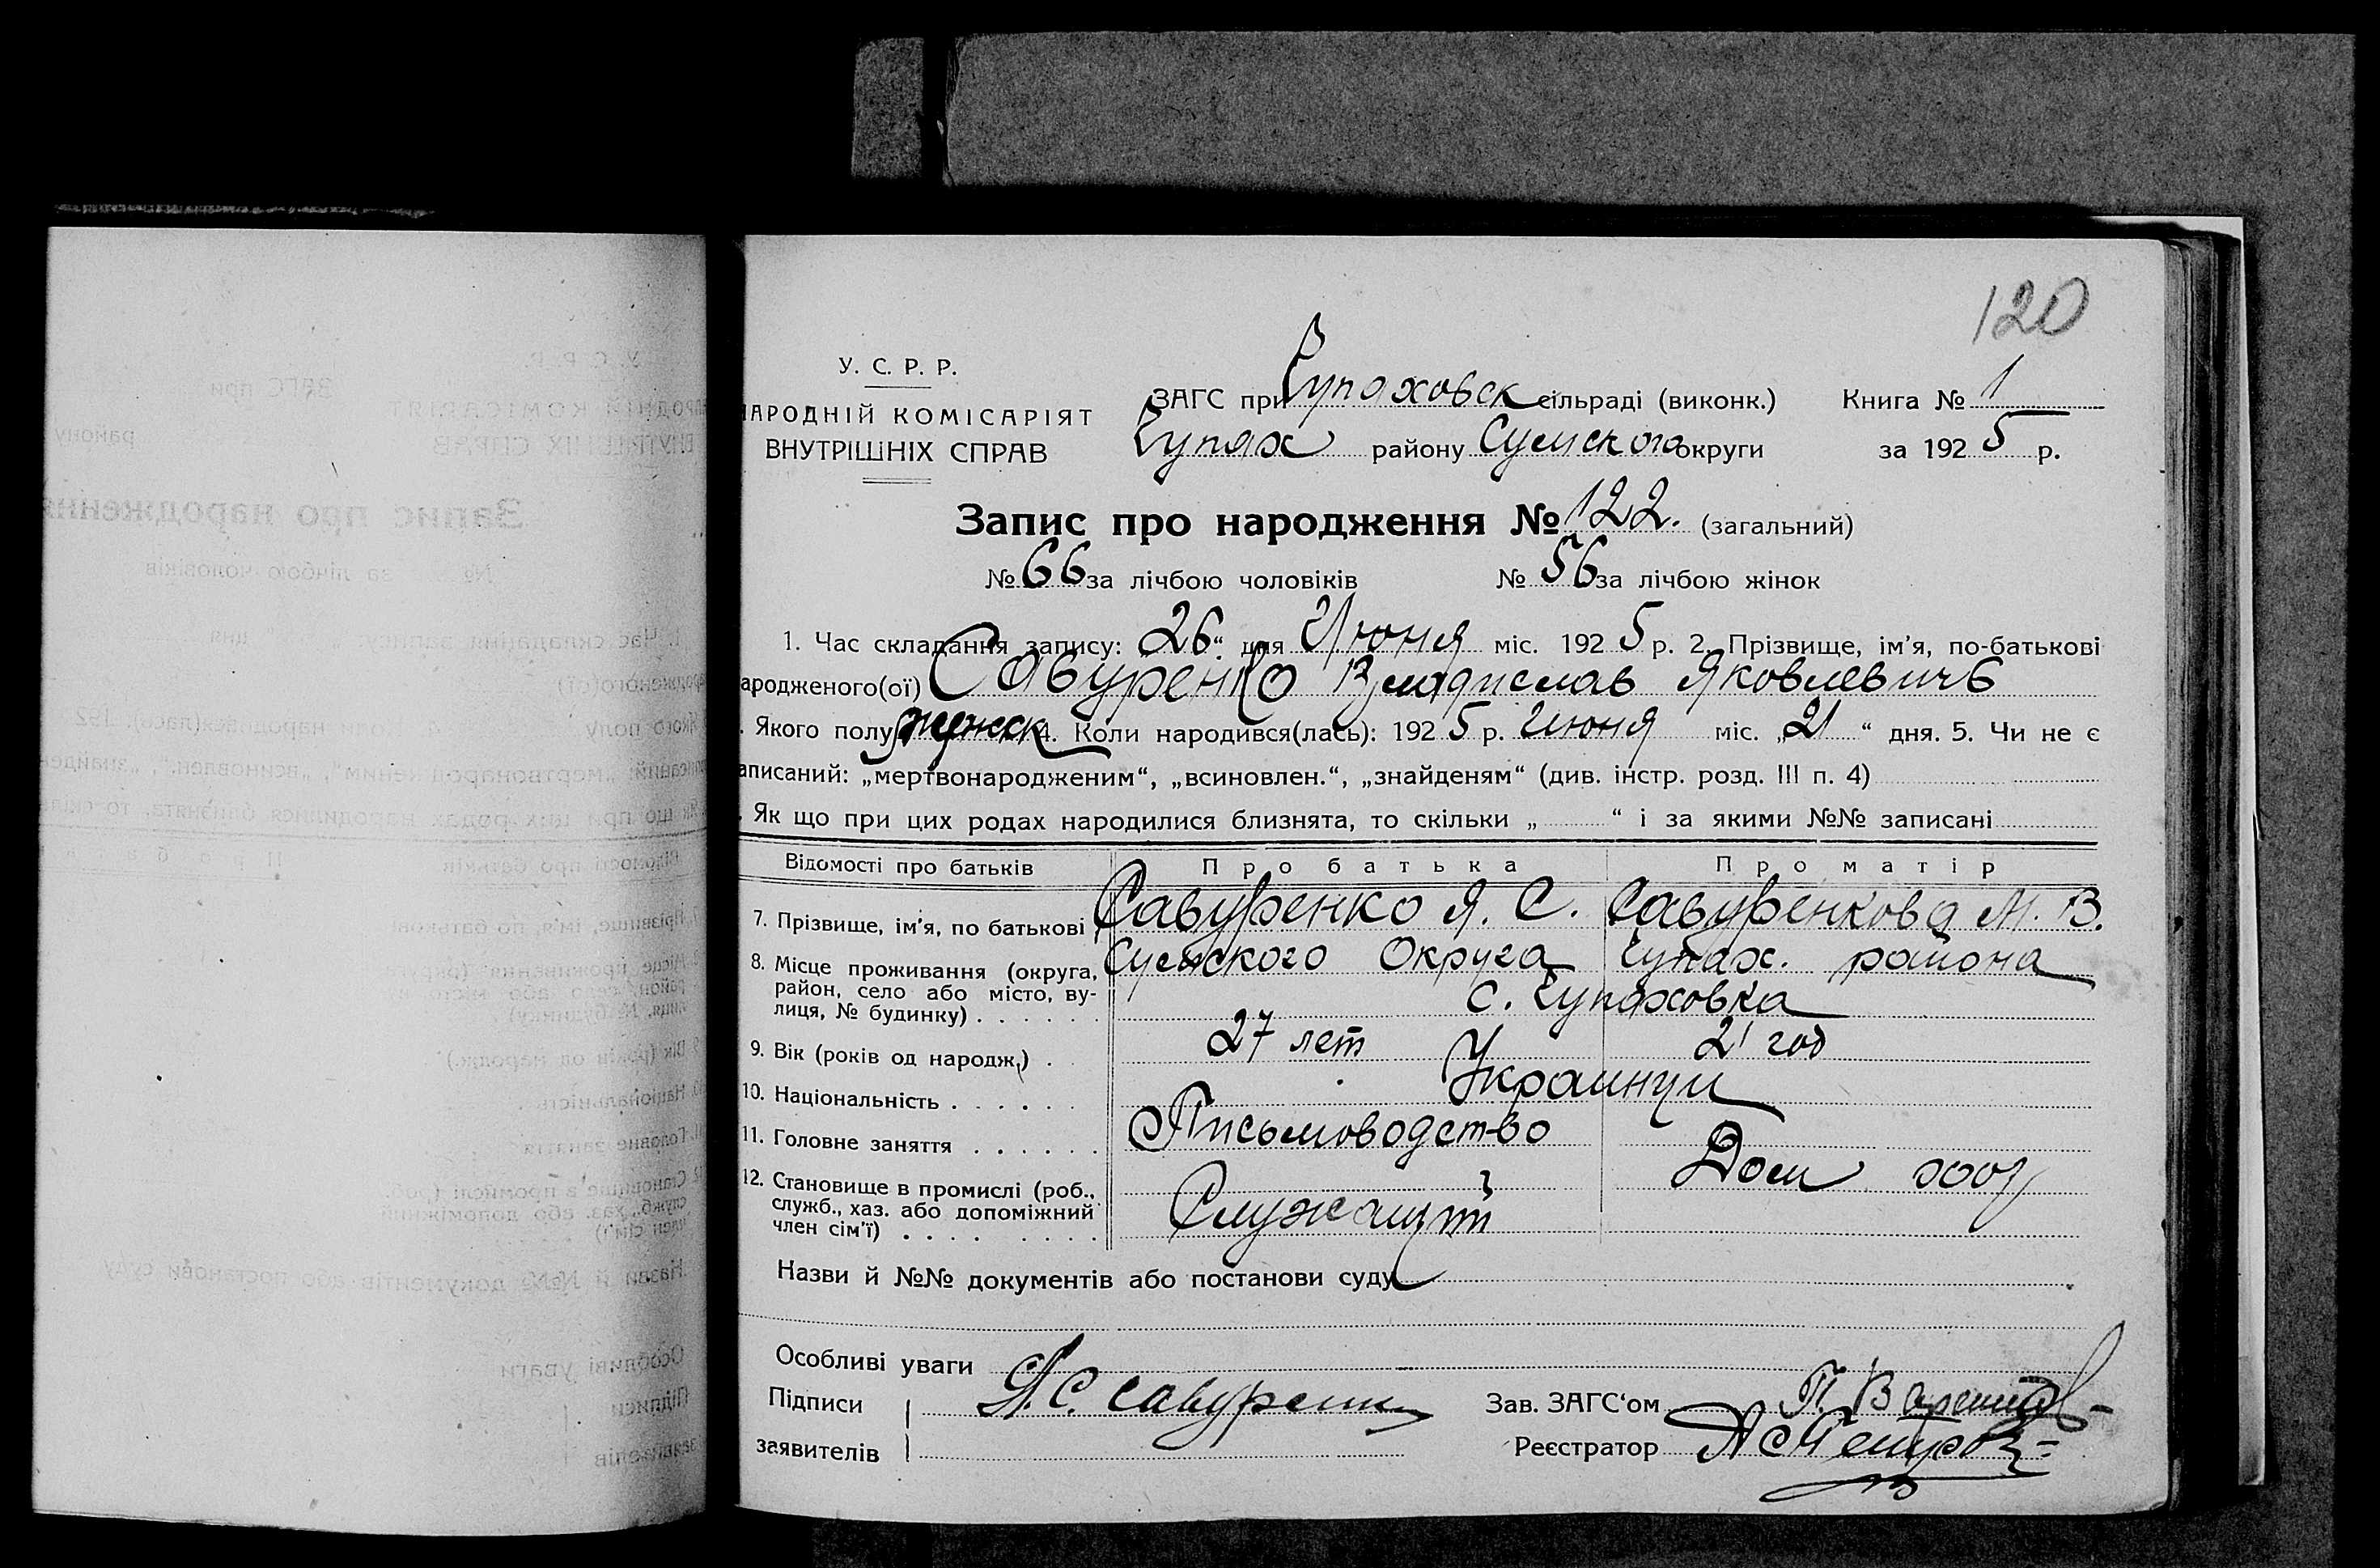 120
У. С. Р. Р.
АРОДНІЙ КОМІСАРІЯТ
ВНУТРІШНІХ СПРАВ
ЗАГС при Чупаховск сільраді (виконк.) Книга № 1
Чупах району Сумского округи за 1925 р.
Запис про народження № 122. (загальний)
№ 66 за лічбою чоловіків № 56 за лічбою жінок
1. Час складання запису: 26 “ дня Июня міс. 1925 р. 2. Прізвище, ім’я, по-батькові
ародженого(ої) Савуренко Владислав Яковлевичъ
. Якого полу мужск 4. Коли народився(лась): 1925 р. Июня міс. „21“ дня. 5. Чи не є
аписаний: „мертвонародженим“, „всиновлен.“, „знайденям“ (див. інстр. розд. III п. 4)
. Як що при цих родах народилися близнята, то скільки „ “ і за якими №№ записані
Відомості про батьків Про батька Про матір
7. Прізвище, ім’я, по батькові Савуренко Я. С. Савуренкова М. В.
8. Місце проживання (округа, район, село або місто, ву-
лиця, № будинку) Сумского Округа Чупах. района
с. Чупаховка
9. Вік (років од народж.) 27 лет 21 год
10. Національність Украинци
11. Головне заняття Письмоводство
12. Становище в промислі (роб., служб., хаз. або допоміжний
член сім’ї) Служащий Дом хоз
Назви й №№ документів або постанови суду
Особливі уваги
Підписи Я. С. Савуренко Зав. ЗАГС‘ом
заявителів Реєстратор